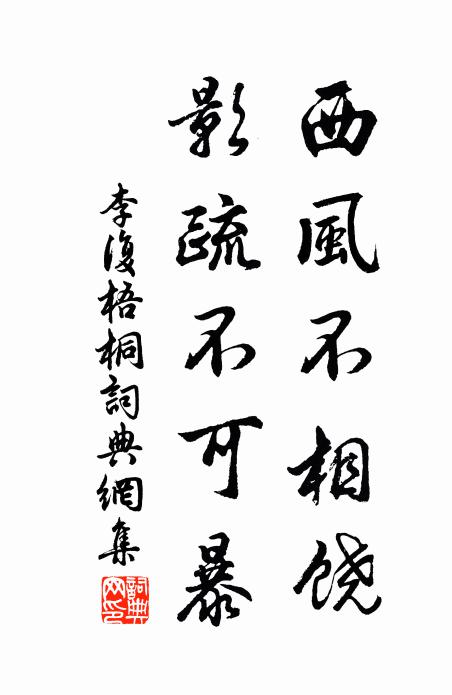 西風不相饶
影疏不可暴
李復梧桐詞典網集
詞典
网印